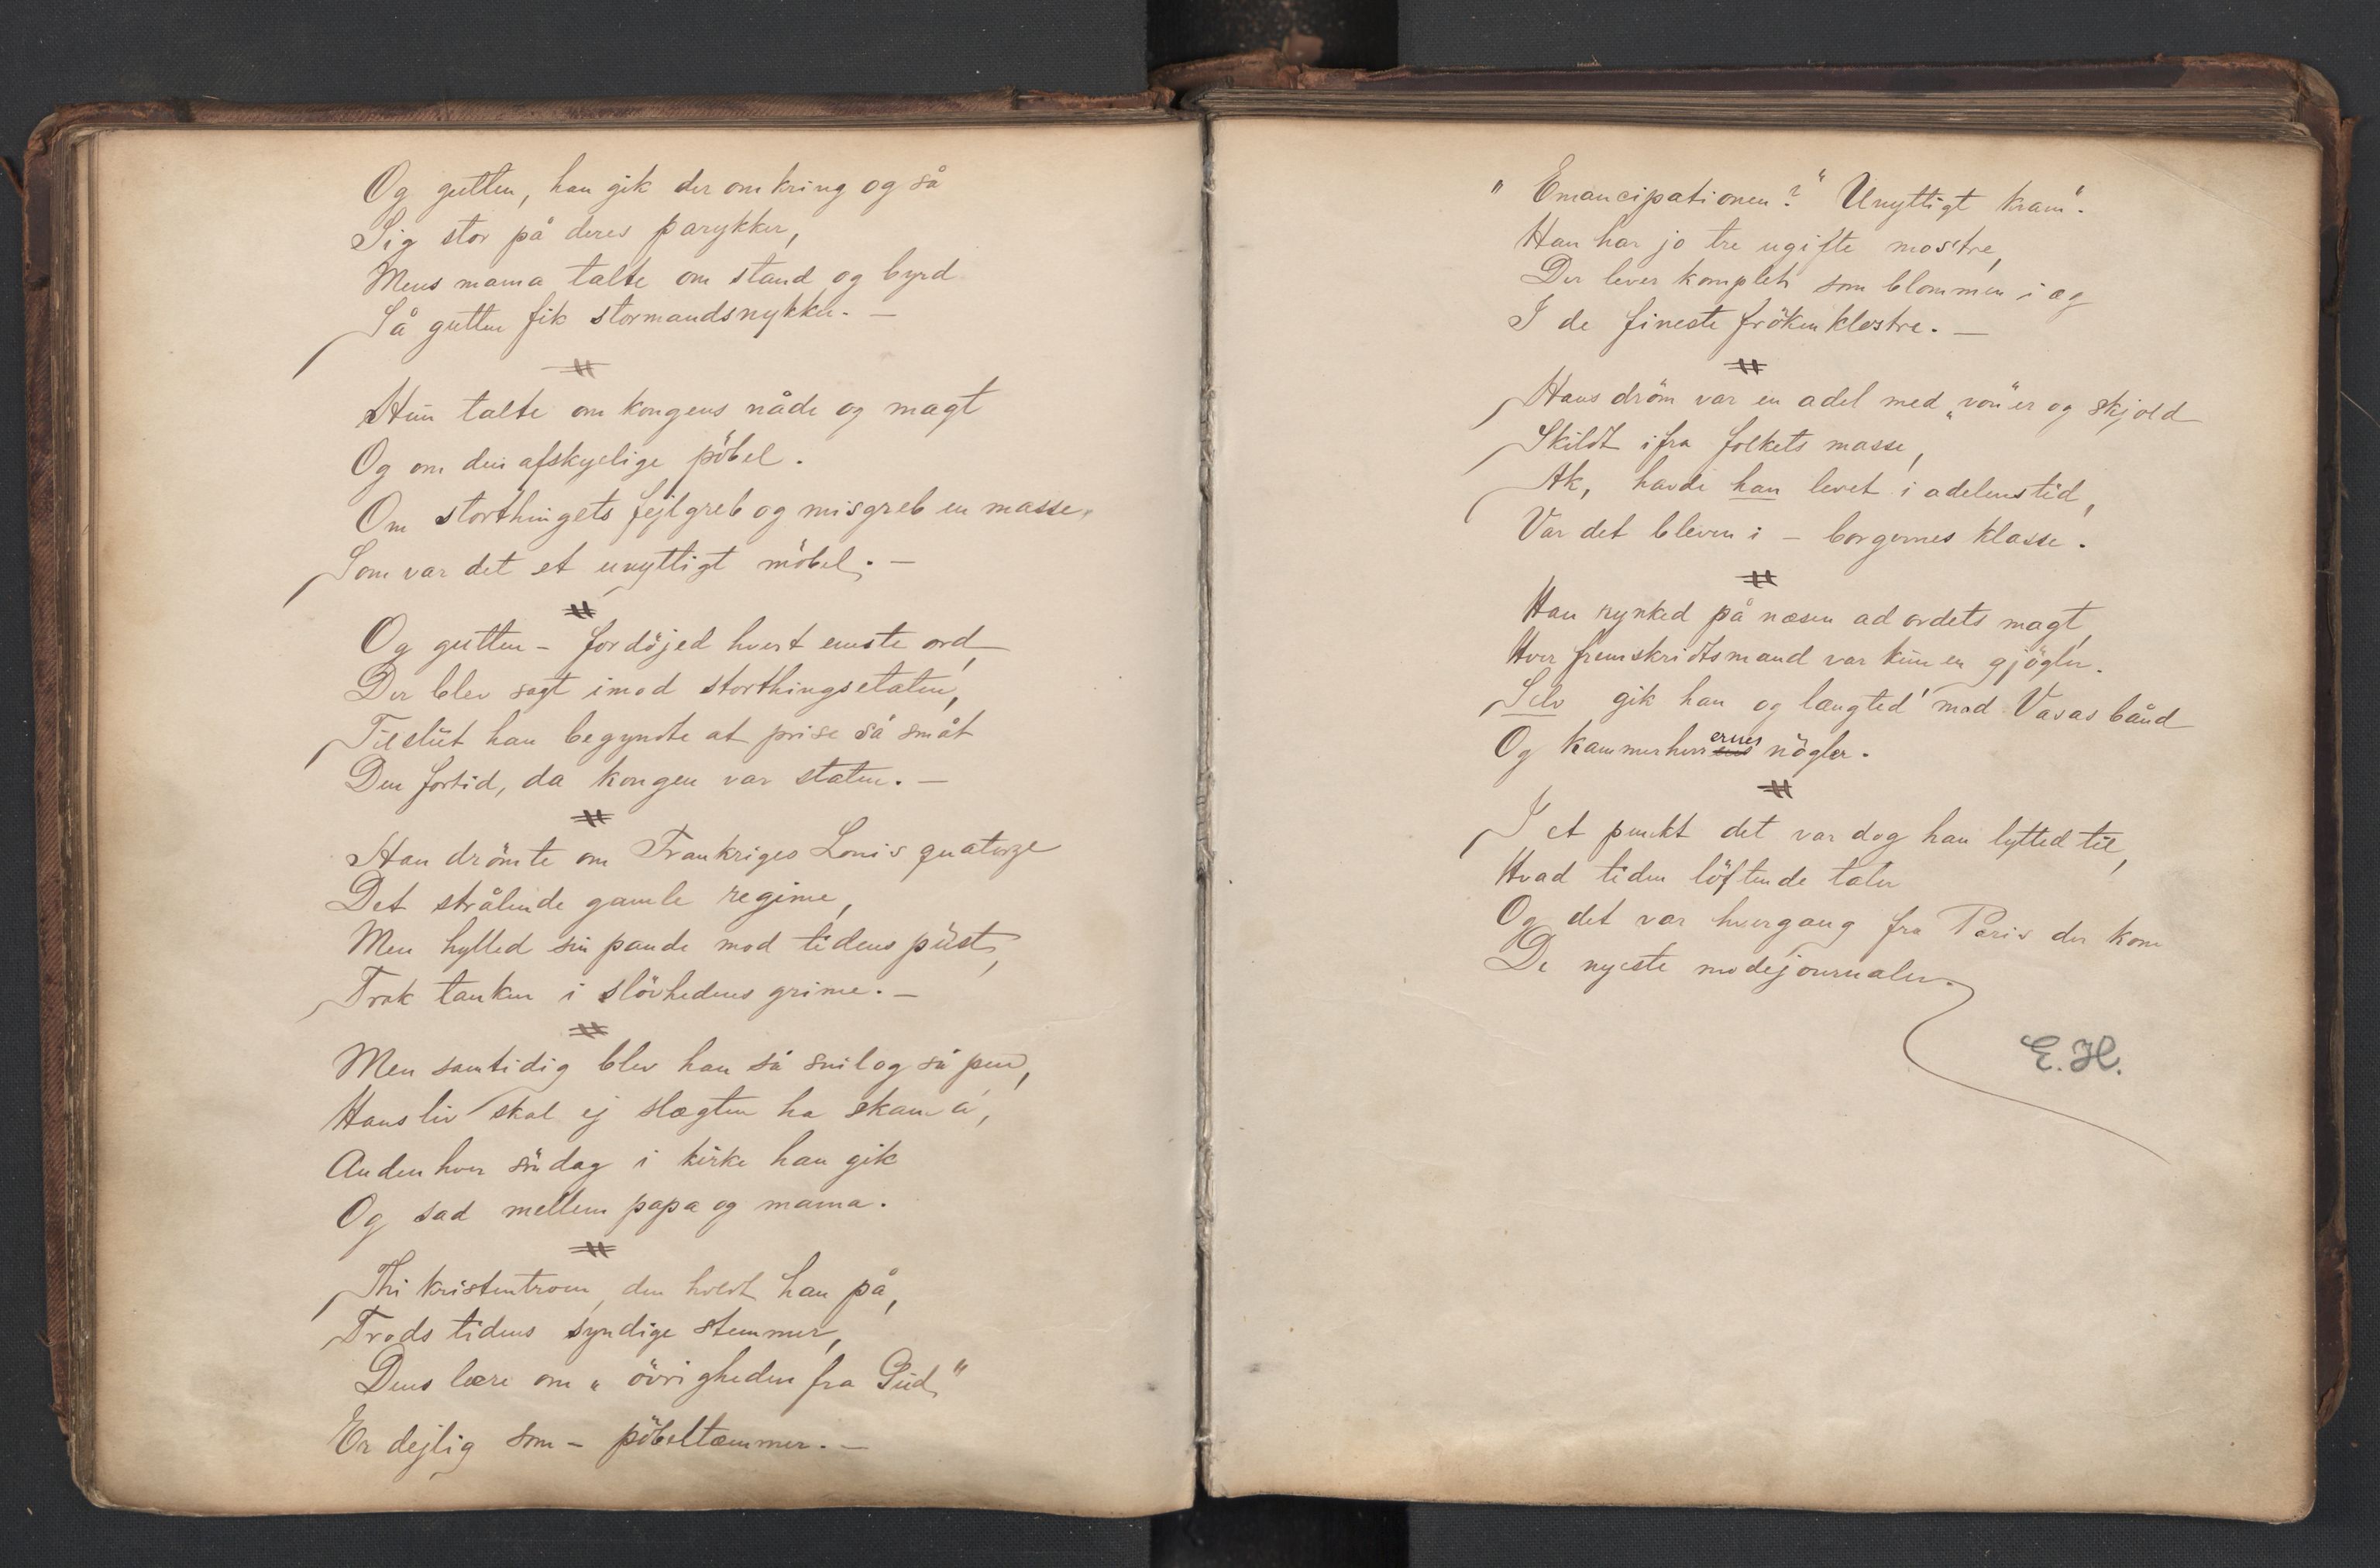 Og gutten, han gik der omkring og så
Sig stor på deres parykker,
Mens mama talte om stand og byrd
Så gutten fik stormandsnykker. —
Hun talte om kongens nåde og magt
Og om den afskyelige pöbel.
Om storthingets fejlgreb og misgreb en masse,
Som var det et unyttigt möbel. —
Og gutten – fordöjed hvert eneste ord,
Der blev sagt imod storthingsetaten,
Tilslut han begyndte at prise så småt
Den fortid, da kongen var staten. —
Han drömte om Frankriges Louis quatorze
Det strålende gamle regime,
Men hylled sin pande mod tidens pust,
Trak tanken i slövhedens grime. —
Men samtidig blev han så snil og så pen,
Hans liv skal ej slægten ha skam a',
Anden hver söndag i kirke han gik
Og sad mellem papa og mama.
Thi kristentroen, den holdt han på,
Trods tidens syndige stemmer,
Dens lære om „övrigheden fra Gud"
Er dejlig som – pöbeltæmmer. —
"Emancipationen?" Unyttigt kram".
Han har jo tre ugifte mostre,
Der lever komplet som blommen i æg
I de fineste frökenklostre. —
Hans dröm var en adel med „von'er og skjold
Skildt ifra folkets masse,
Ak, havde han levet i adelens tid,
Var det bleven i – borgernes klasse.
Han rynked på næsen ad ordets magt,
Hver fremskridtsmand var kun en gjögler.
Selv gik han og længted' mod Vasas bånd
Og kammerherrernes nögler.
I et punkt det var dog han lytted til,
Hvad tiden löftende taler
Og det var hvergang fra Paris der kom
De nyeste modejournaler.
E. H.